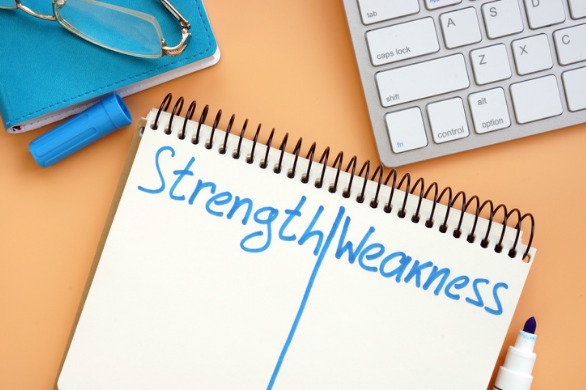 tab
A
S
D
caps lock
Z
X
C
shift
fn
control
alt
option
Strength Weakness